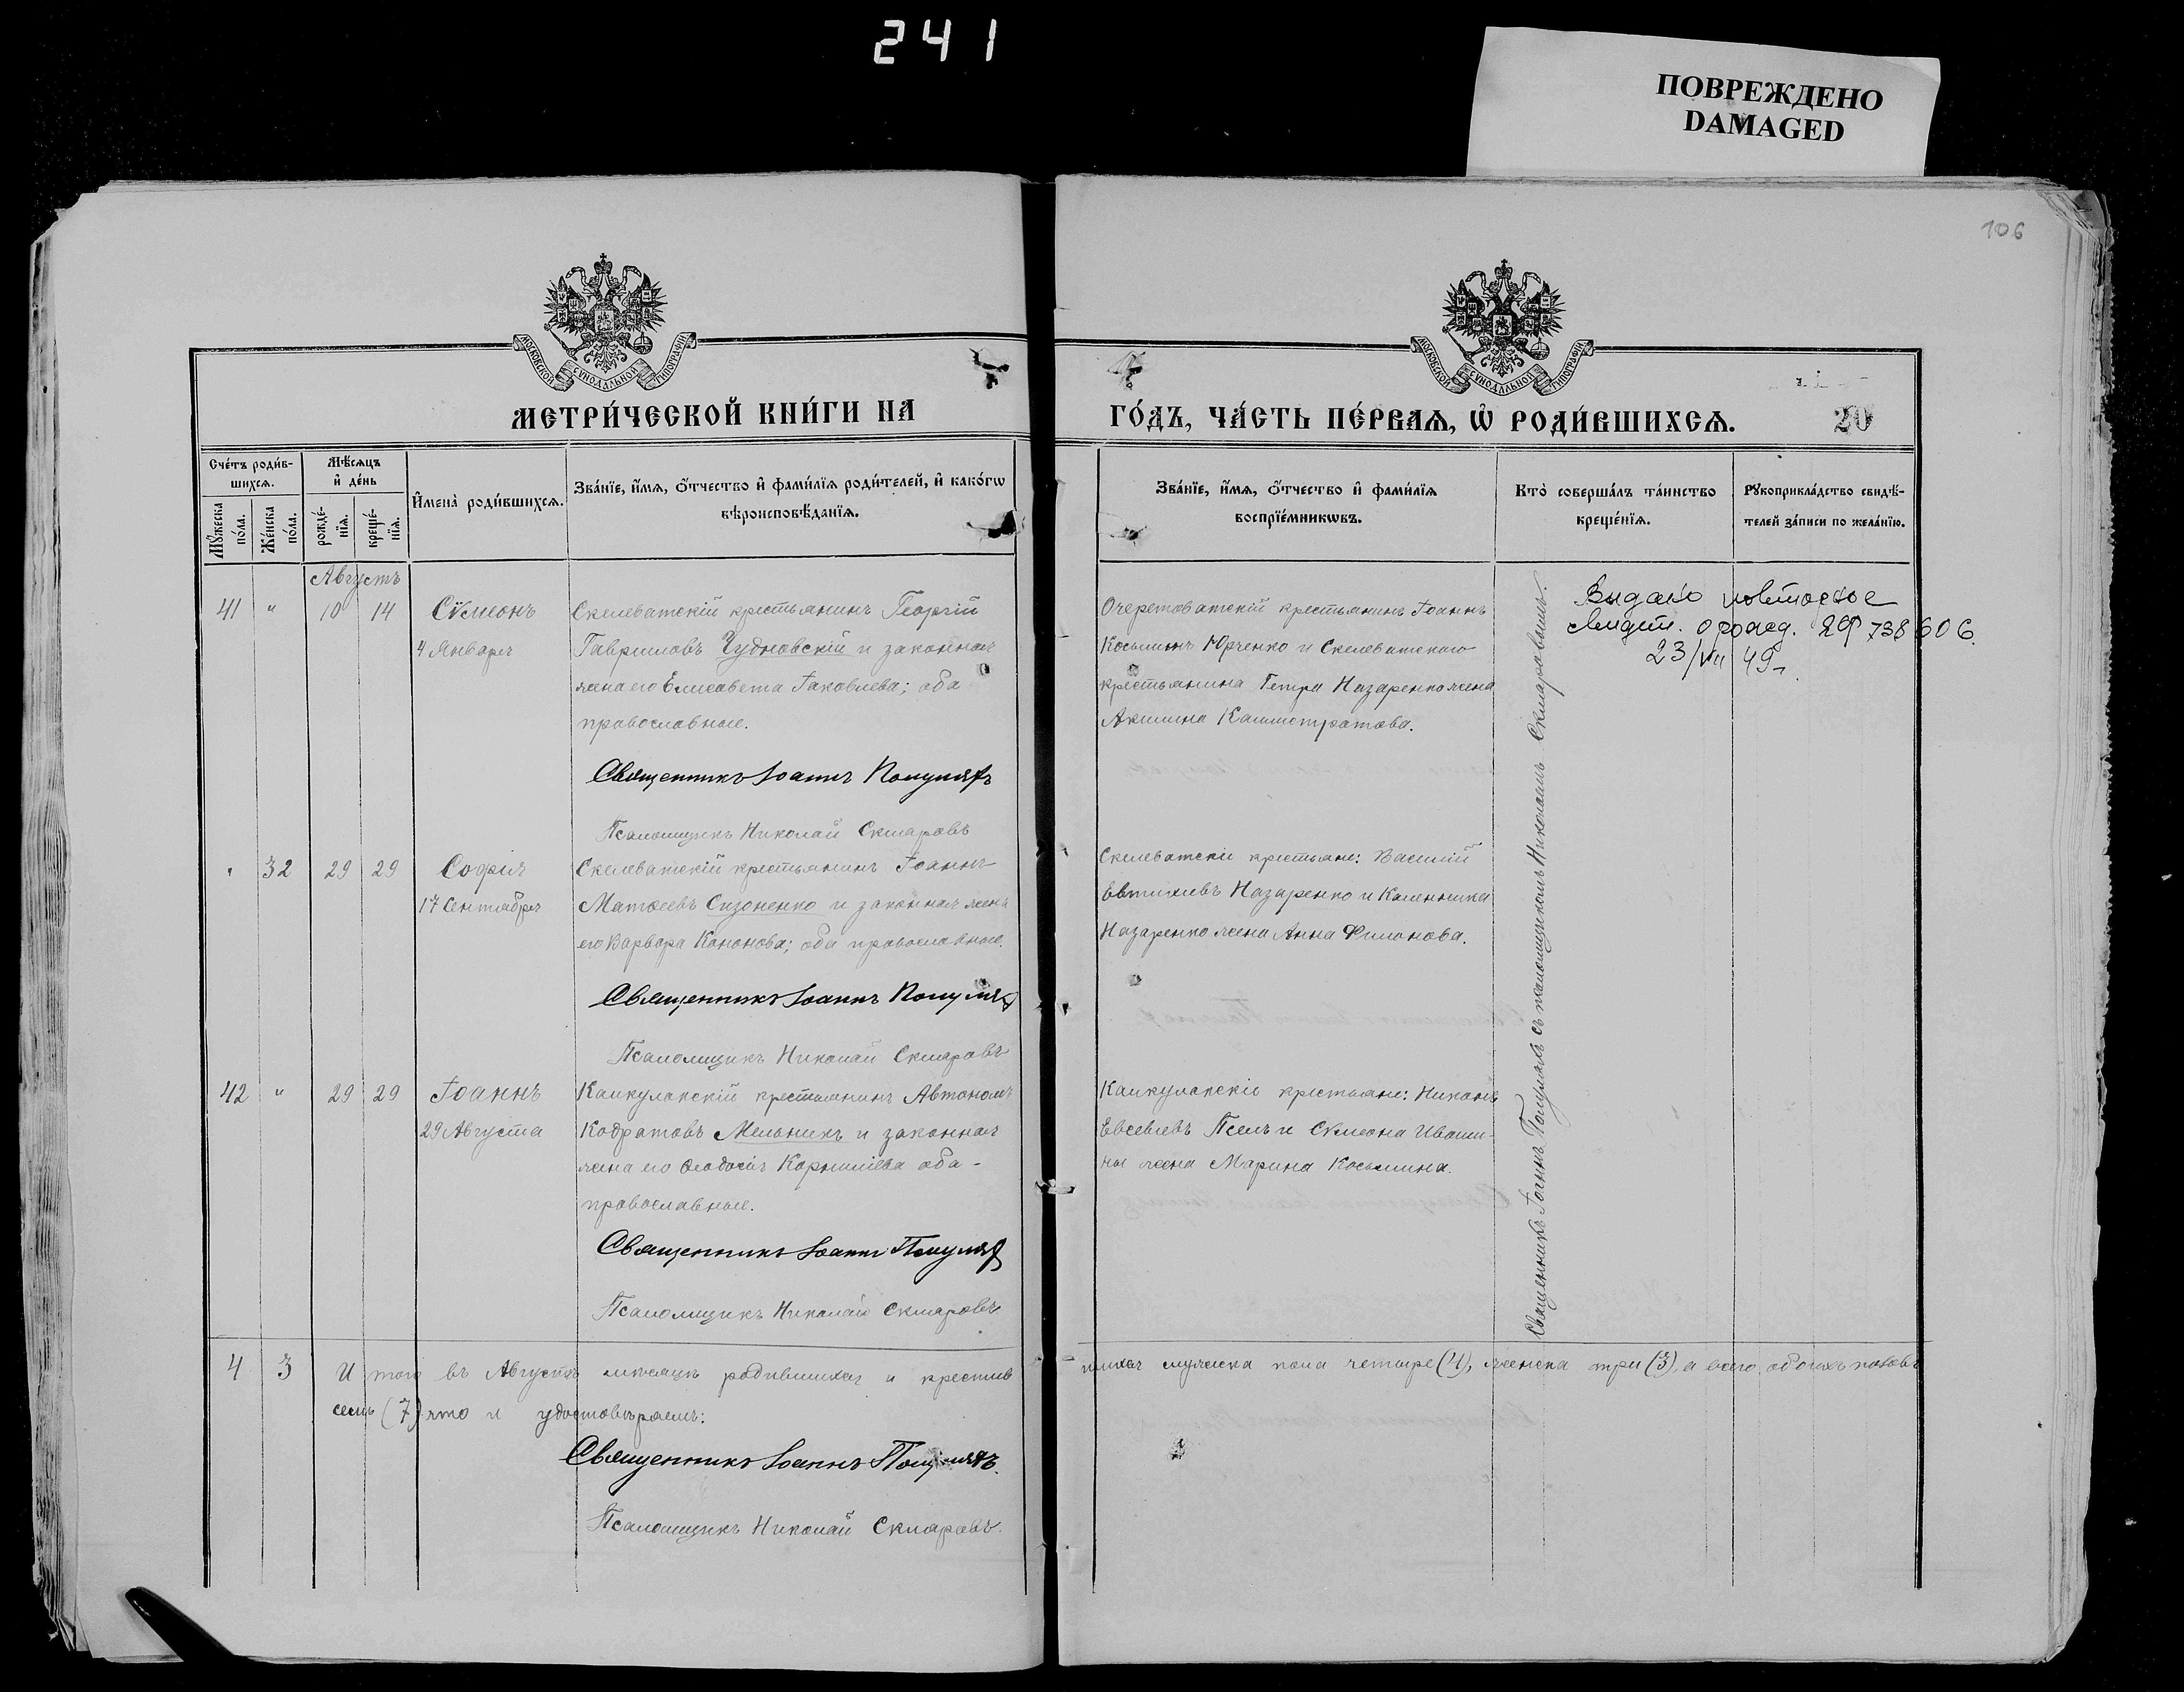 241
ПОВРЕЖДЕНО
DAMAGED
106
МОСКОВСКОЙ СУНОДАЛЬНОЙ ТИПОГРАФІИ
МОСКОВСКОЙ СУНОДАЛЬНОЙ ТИПОГРАФІИ
МЕТРИ́ЧЕСКОЙ КНИ́ГИ НА
ГО́ДЪ, ЧА́СТЬ ПЕ́РВАЯ, Ѡ҆ РОДИ́ВШИХСЯ.
20
Сче́тъ роди́в-
шихся.
Мѣ́сяцъ
и҆ де́нь
Мꙋ́жеска
по́ла.
Же́нска
по́ла.
рожде́-
нїя.
креще́-
нїя.
И҆мена̀ роди́вшихся.
Зва́нїе, и҆́мя, ѻ҆́тчество и҆ фами́лїя роди́телей, и҆ како́гѡ
вѣроисповѣ́данїя.
Зва́нїе, и҆́мя, ѻ҆́тчество и҆ фами́лїя
воспрїе́мникѡвъ.
Кто̀ соверша́лъ та́инство
креще́нїя.
Рꙋкоприкла́дство свидѣ́-
телей за́писи по жела́нїю.
Августъ
41 " 10 14 Сѵмеонъ
4 Января
Скелеватскій крестьянинъ Георгій
Гавриловъ Чудновскій и законная
жена его Елисавета Іаковлева; оба
православные.
Священникъ Іоаннъ Полулях
Псаломщикъ Николай Скляровъ
Очеретоватскій крестьянинъ Іоаннъ
Косьминъ Юрченко и Скелеватскаго
крестьянина Петра Назаренко жена
Акилина Каллистратова.
Выдано повторное
свидет. о рожд. 738606
23/VII 49г.
Священникъ Іоаннъ Полуляхъ съ псаломщикомъ Николаемъ Скляровымъ.
" 32 29 29 Софія
17 Сентября
Скелеватскій крестьянинъ Іоаннъ
Матѳеевъ Сизоненко и законная жена
его Варвара Кононова; оба православные.
Священникъ Іоаннъ Полулях
Псаломщикъ Николай Скляровъ
Скелеватскіе крестьяне: Василій
Евтихіевъ Назаренко и Каленника
Назаренко жена Анна Филонова.
42 " 29 29 Іоаннъ
29 Августа
Канкулакскій крестьянинъ Автономъ
Кодратовъ Мельникъ и законная
жена его Ѳеодосія Корнилієва оба -
православные.
Священникъ Іоаннъ Полулях
Псаломщикъ Николай Скляровъ
крестьяне:
Евсевіевъ Псёлъ и Сѵмеона Иваши-
ны жена Марина Косьмина.
4 3 Итого въ Августѣ мѣсяцѣ родившихся и крестив
шихся мужеска пола четыре (4), женска три (3), а всего обоего половъ
семь (7) что и удостовѣряемъ:
Священникъ Іоаннъ Полуляхъ.
Псаломщикъ Николай Скляровъ.